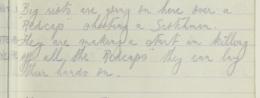 Big riots are going on here over a
Redcap shooting a Scotchman.
They are making a start in killing
off all the "Redcaps" they can lay
their hands on.